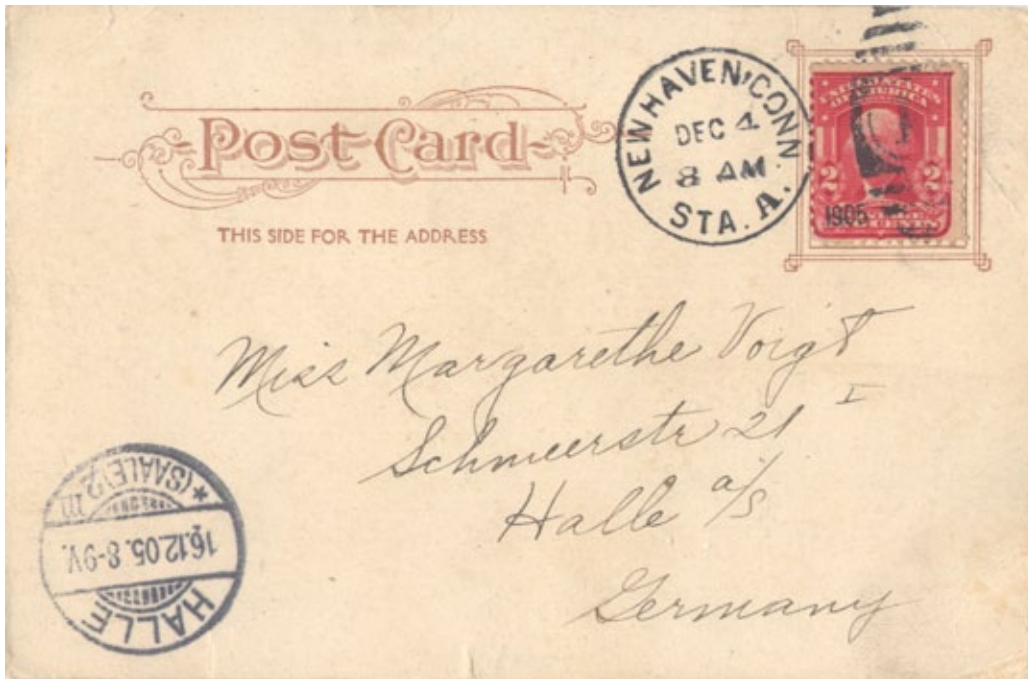 Post Card
THIS SIDE FOR THE ADDRESS
NEW HAVEN, CONN
DEC 4
8 AM
STA. A.
1905
UNITED STATES
OF AMERICA
2 2
Miss Margarethe Voigt
Schmeerstr 21 I
Halle a/S
Germany
HALLE
16.12.05. 8-9V.
*(SAALE)2 m